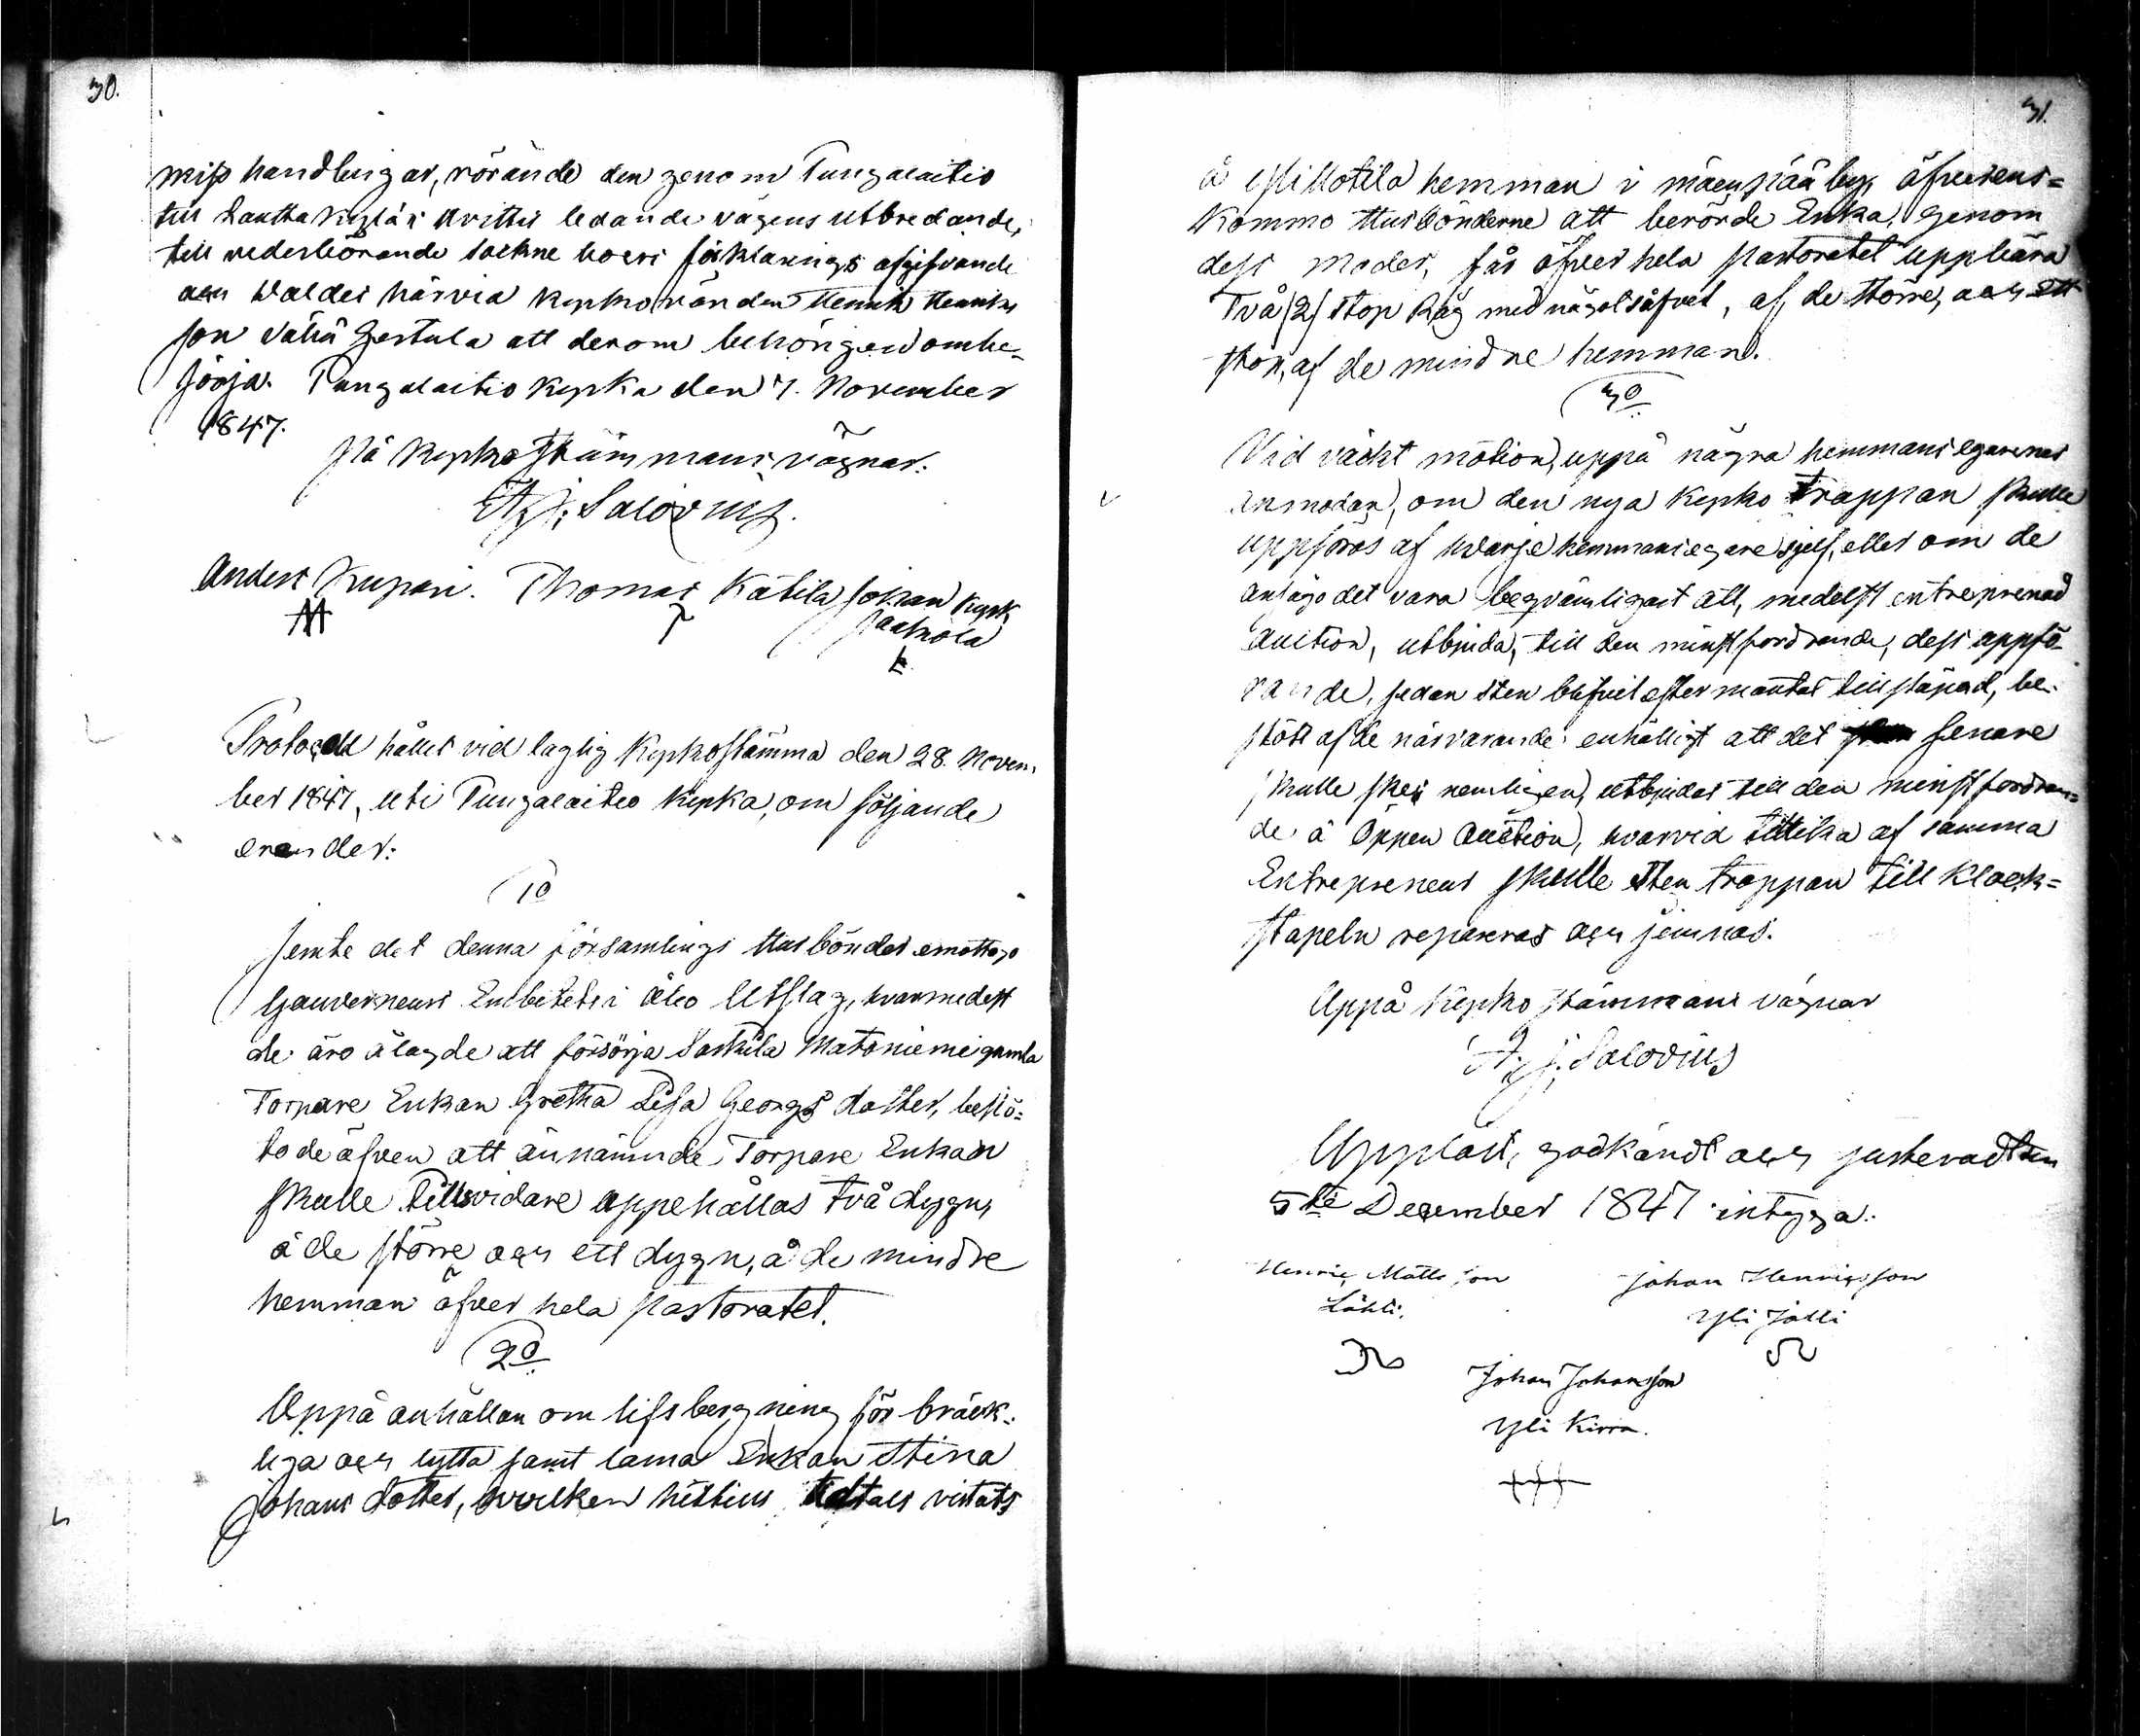 30.
miss handlingar, rörande den genom Pungalaitio
till Lauttakylä i Hvittis ledande vägens utbredande,
till vederbörande Sockne boers förklarings afgifvande
och Valdes härvid Kyrkovärden Henrik Henriks
son Vähä Gertula att derom behörigen ombe-
sörja. Pungalaitio Kyrka den 7. November
1847.
På Kyrkostämmans vägnar:
A. J. Salovius.
Anders Kupari. Thomas Kätilä Johan Kyrk
Jaakola
Protocoll hållet vid laglig Kyrkostämma den 28. Novem-
ber 1847, uti Pungalaitio Kyrka, om följande
ärender:
1o
Jemte det denna församlings Husbönder emottogo
Gouverneurs Embetets i Åbo Utslag, hvarmedelst
de äro ålagde att försörja Sarkila Mataniemi gamla
Torpare Enkan Gretha Lisa Georgs dotter, beslö-
to de äfven att ännämnde Torpare Enkan
skulle tillsvidare uppehållas två dygn,
å de större och ett dygn, å de mindre
hemman öfver hela Pastoratet.
2o
Uppå anhållan om lifsbergning för bräck-
liga och lytta samt lama Enkan Stina
Johans dotter, hvilken hittills vistats
31.
å hemman i Mäenpää by, öfverens=
kommo Husbönderne att berörde Enka, genom
dess moder, får öfver hela Pastoratet uppbära
Två (2) stop Råg med någol såfvel, af de större, och ett
stop, af de mindre hemman.
3o
Vid väckt motion, uppå några hemmansegarenes
anmodan, om den nya Kyrko trappan skulle
uppföras af hvarje hemmansegare sjelf, eller om de
ansågo det vara beqvämligast att, medelst entreprenad
Auction, utbjuda, till den minstfordrande, dess uppfö-
rande, sedan sten blifvit efter mantal tillskjutad, be-
slöts af de närvarande enhälligt att det senare
skulle ske, nemligen, utbjudas till den minstfordran=
de å Öppen Auction, hvarvid tillika af samma
Entrepreneur skulle sten trappan till Klock=
stapeln repareras och jemnas.
Uppå Kyrko stämmans vägnar
A. J. Salovius
Uppläst, godkändt och justeradt den
5te December 1847 intyga:
Henric Matts son Johan Henricsson
Lähli. Yli Jalli
Johan Johansson
Yli Kirra.